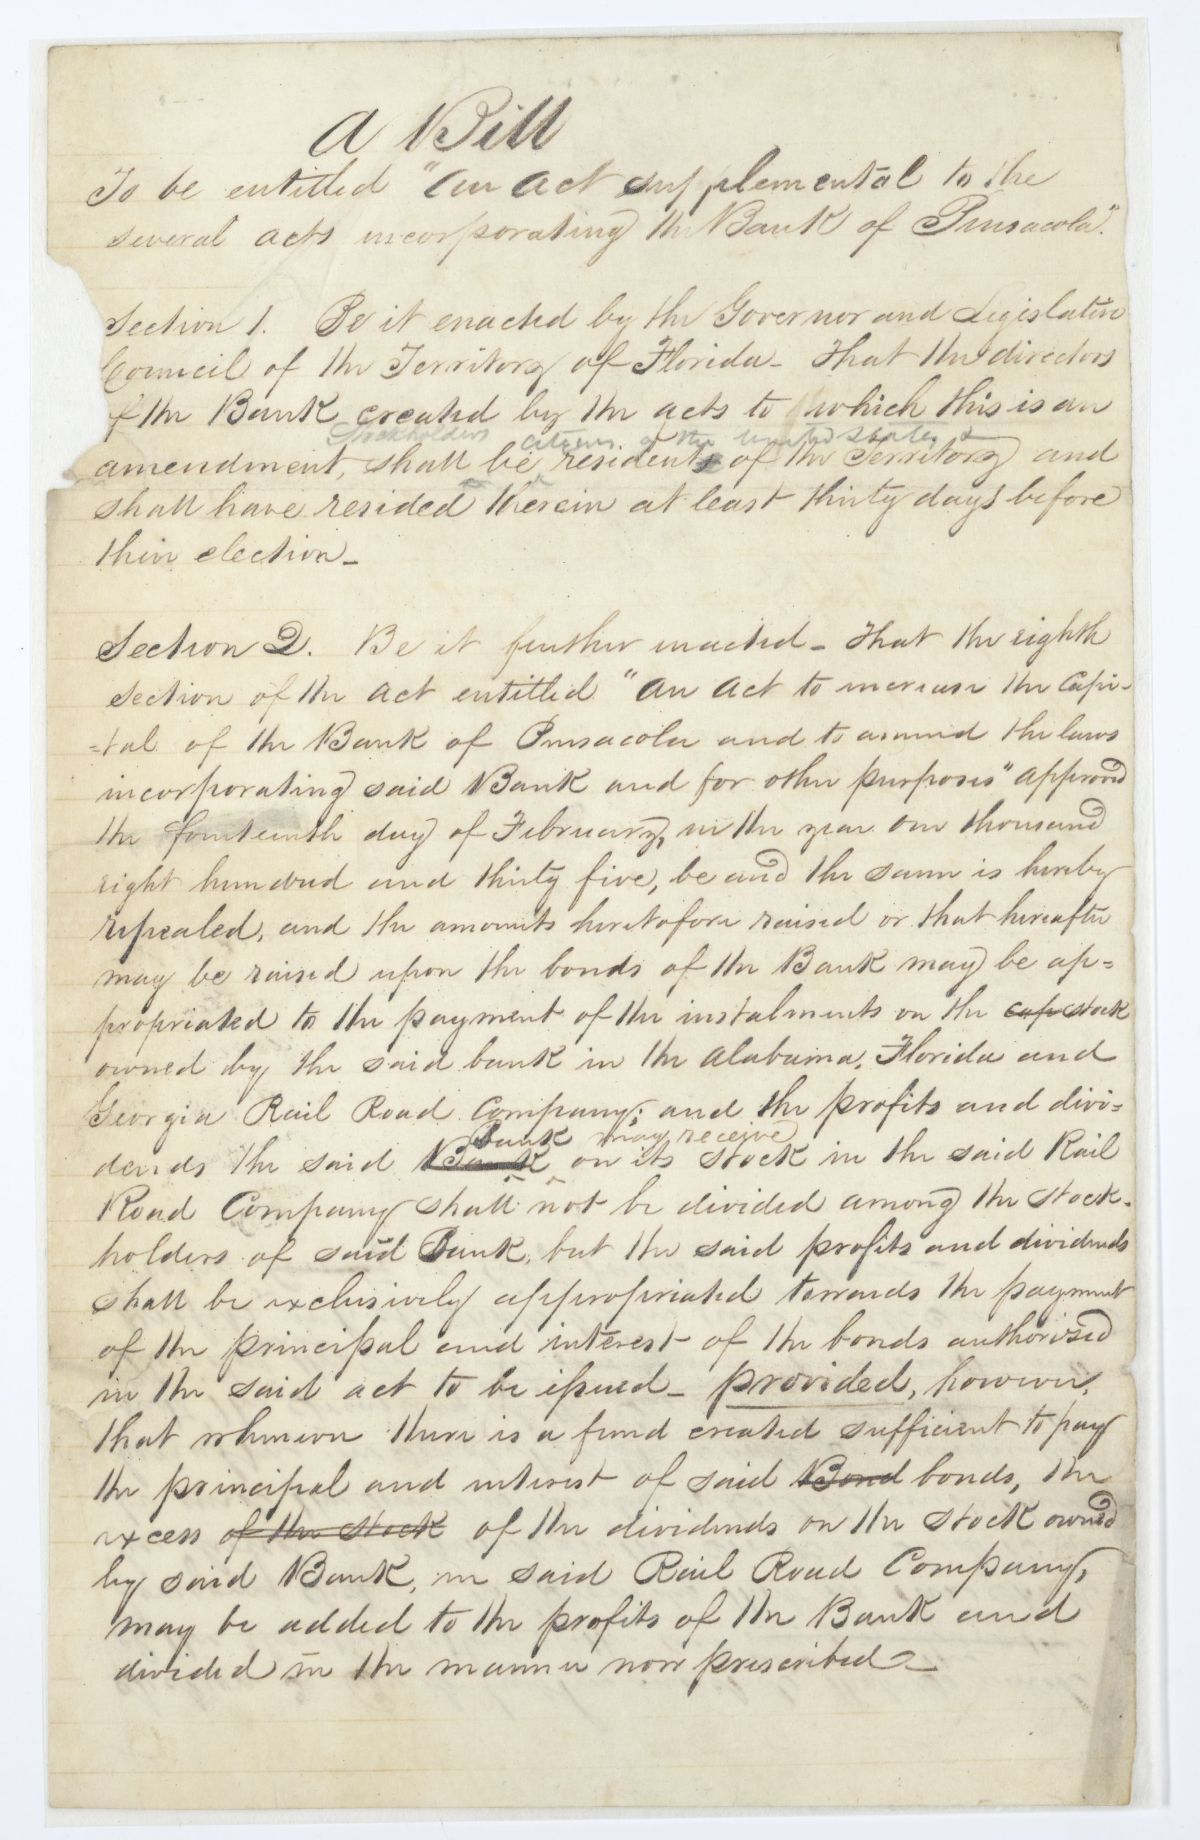 A Bill
To be entitled "An Act supplemental to the
several acts incorporating the Bank of Pensacola".
Section 1. Be it enacted by the Governor and Legislative
Council of the Territory of Florida - That the directors
of the Bank created by the acts to which this is an
Stockholders citizens of the United States &
amendment, shall be residents of the Territory and
shall have resided therein at least thirty days before
their election -
Section 2. Be it further enacted - That the eighth
section of the act entitled "An Act to increase the Capi-
-tal of the Bank of Pensacola and to amend the laws
incorporating said Bank and for other purposes" approved
the fourteenth day of February, in the year one thousand
eight hundred and thirty five, be and the same is hereby
repealed, and the amounts heretofore raised or that hereafter
may be raised upon the bonds of the Bank may be ap=
propriated to the payment of the instalments on the cap stock
owned by the said bank in the Alabama, Florida and
Georgia Rail Road Company; and the profits and divi=
Bank may receive
dends the said Bank on its stock in the said Rail
Road Company shall not be divided among the stock-
holders of said Bank, but the said profits and dividends
shall be exclusively appropriated towards the payment
of the principal and interest of the bonds authorised
in the said act to be issued - provided, however,
that whenever there is a fund created sufficient to pay
the principal and interest of said Bond bonds, the
excess of the stock of the dividends on the stock owned
by said Bank, in said Rail Road Company,
may be added to the profits of the Bank and
divided in the manner now prescribed -